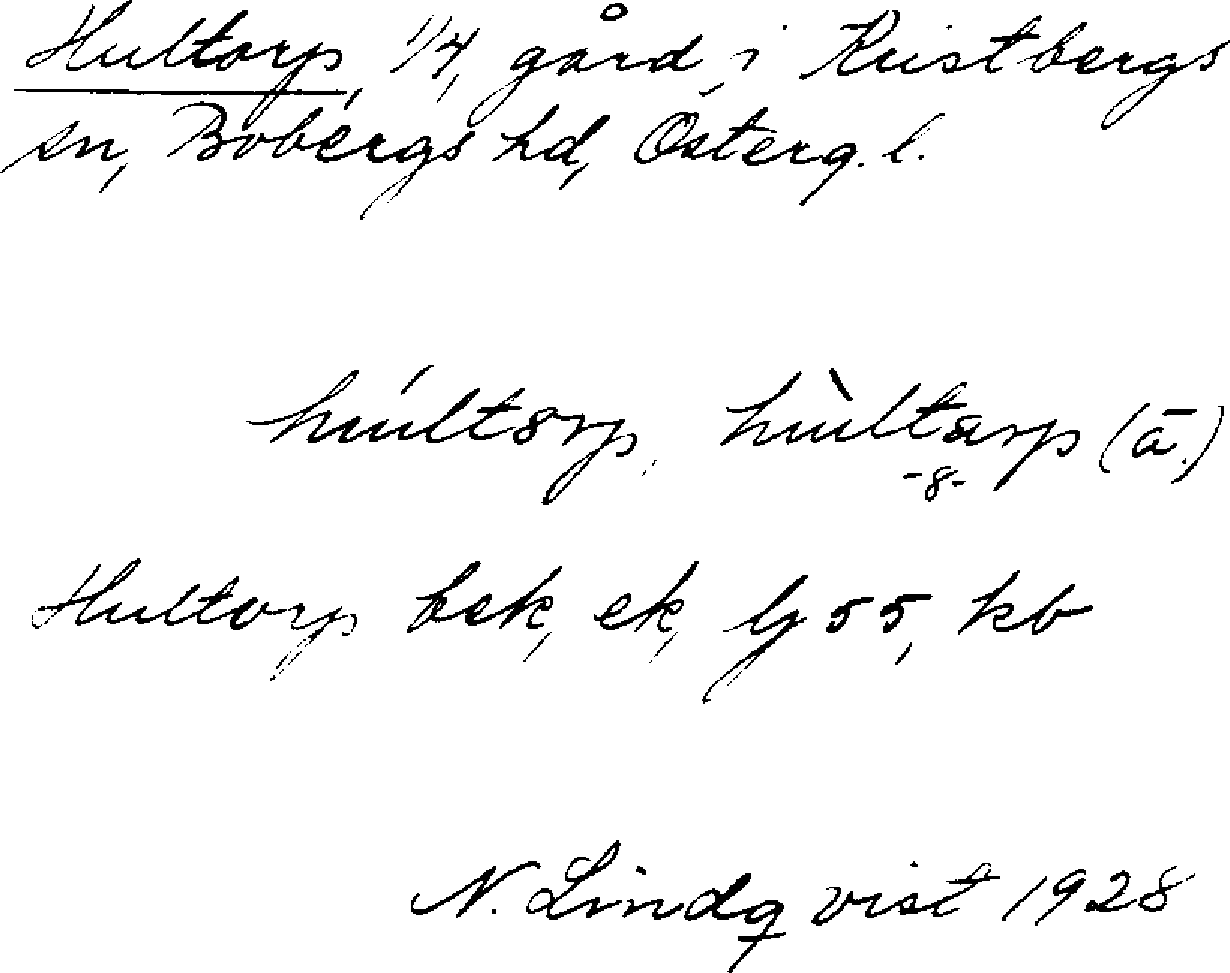 Hultorp, 1/4, gård i Kristbergs
sn, Bobergs hd, Österg. l.
húltorp, hùltarp (ā.)
-8-
Hultorp bek, ek, lj 55, kb
N. Lindqvist 1928